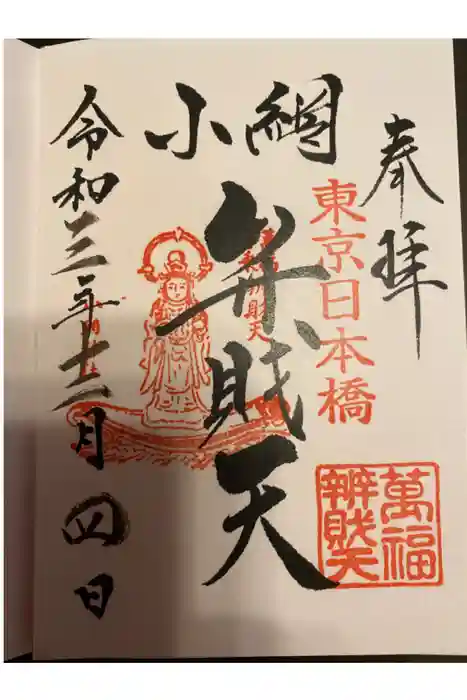 奉拝
東京日本橋
小網
弁財天
令和三年十二月四日
萬福
辨財天